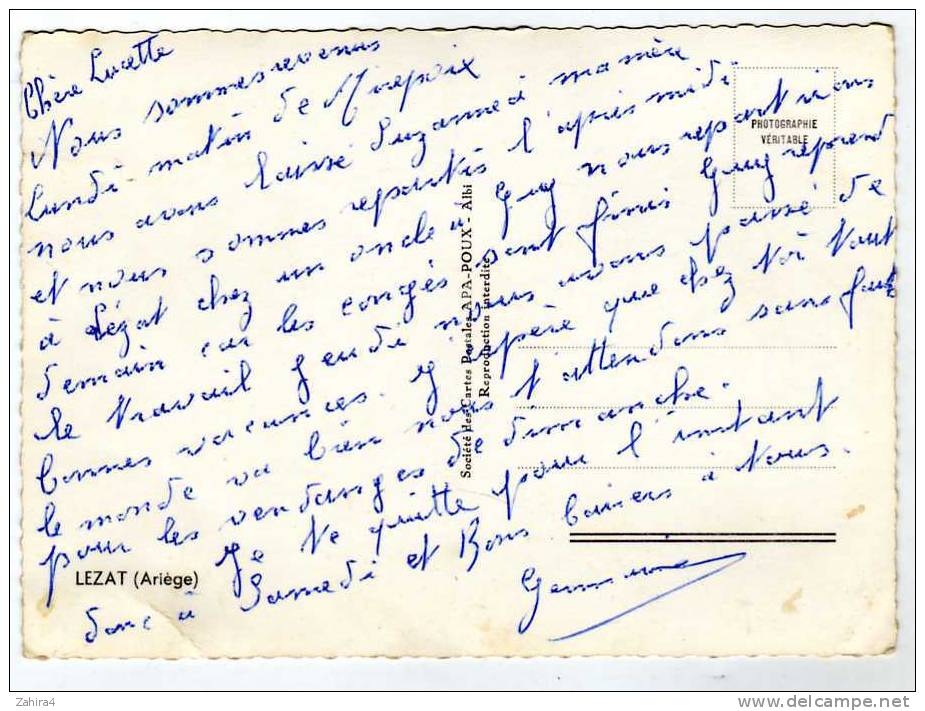 Chère Lucette
Nous sommes revenus
lundi matin de Mirepoix
nous avons laissé Suzanne à ma mère
et nous sommes repartis l'après midi
à Lézat chez un oncle à Guy nous repartirons
demain car les congés sont finis Guy reprend
le travail jeudi nous avons passé de
bonnes vacances. J'espère que chez toi tout
le monde va bien nous t'attendons sans faute
pour les vendanges de dimanche.
Je te quitte pour l'instant
donc à Samedi et Bons baisers à Vous.
Germaine
PHOTOGRAPHIE
VÉRITABLE
Société des Cartes Postales APA-POUX - Albi
Reproduction interdite
LEZAT (Ariège)
Zahira4
www.delcampe.net